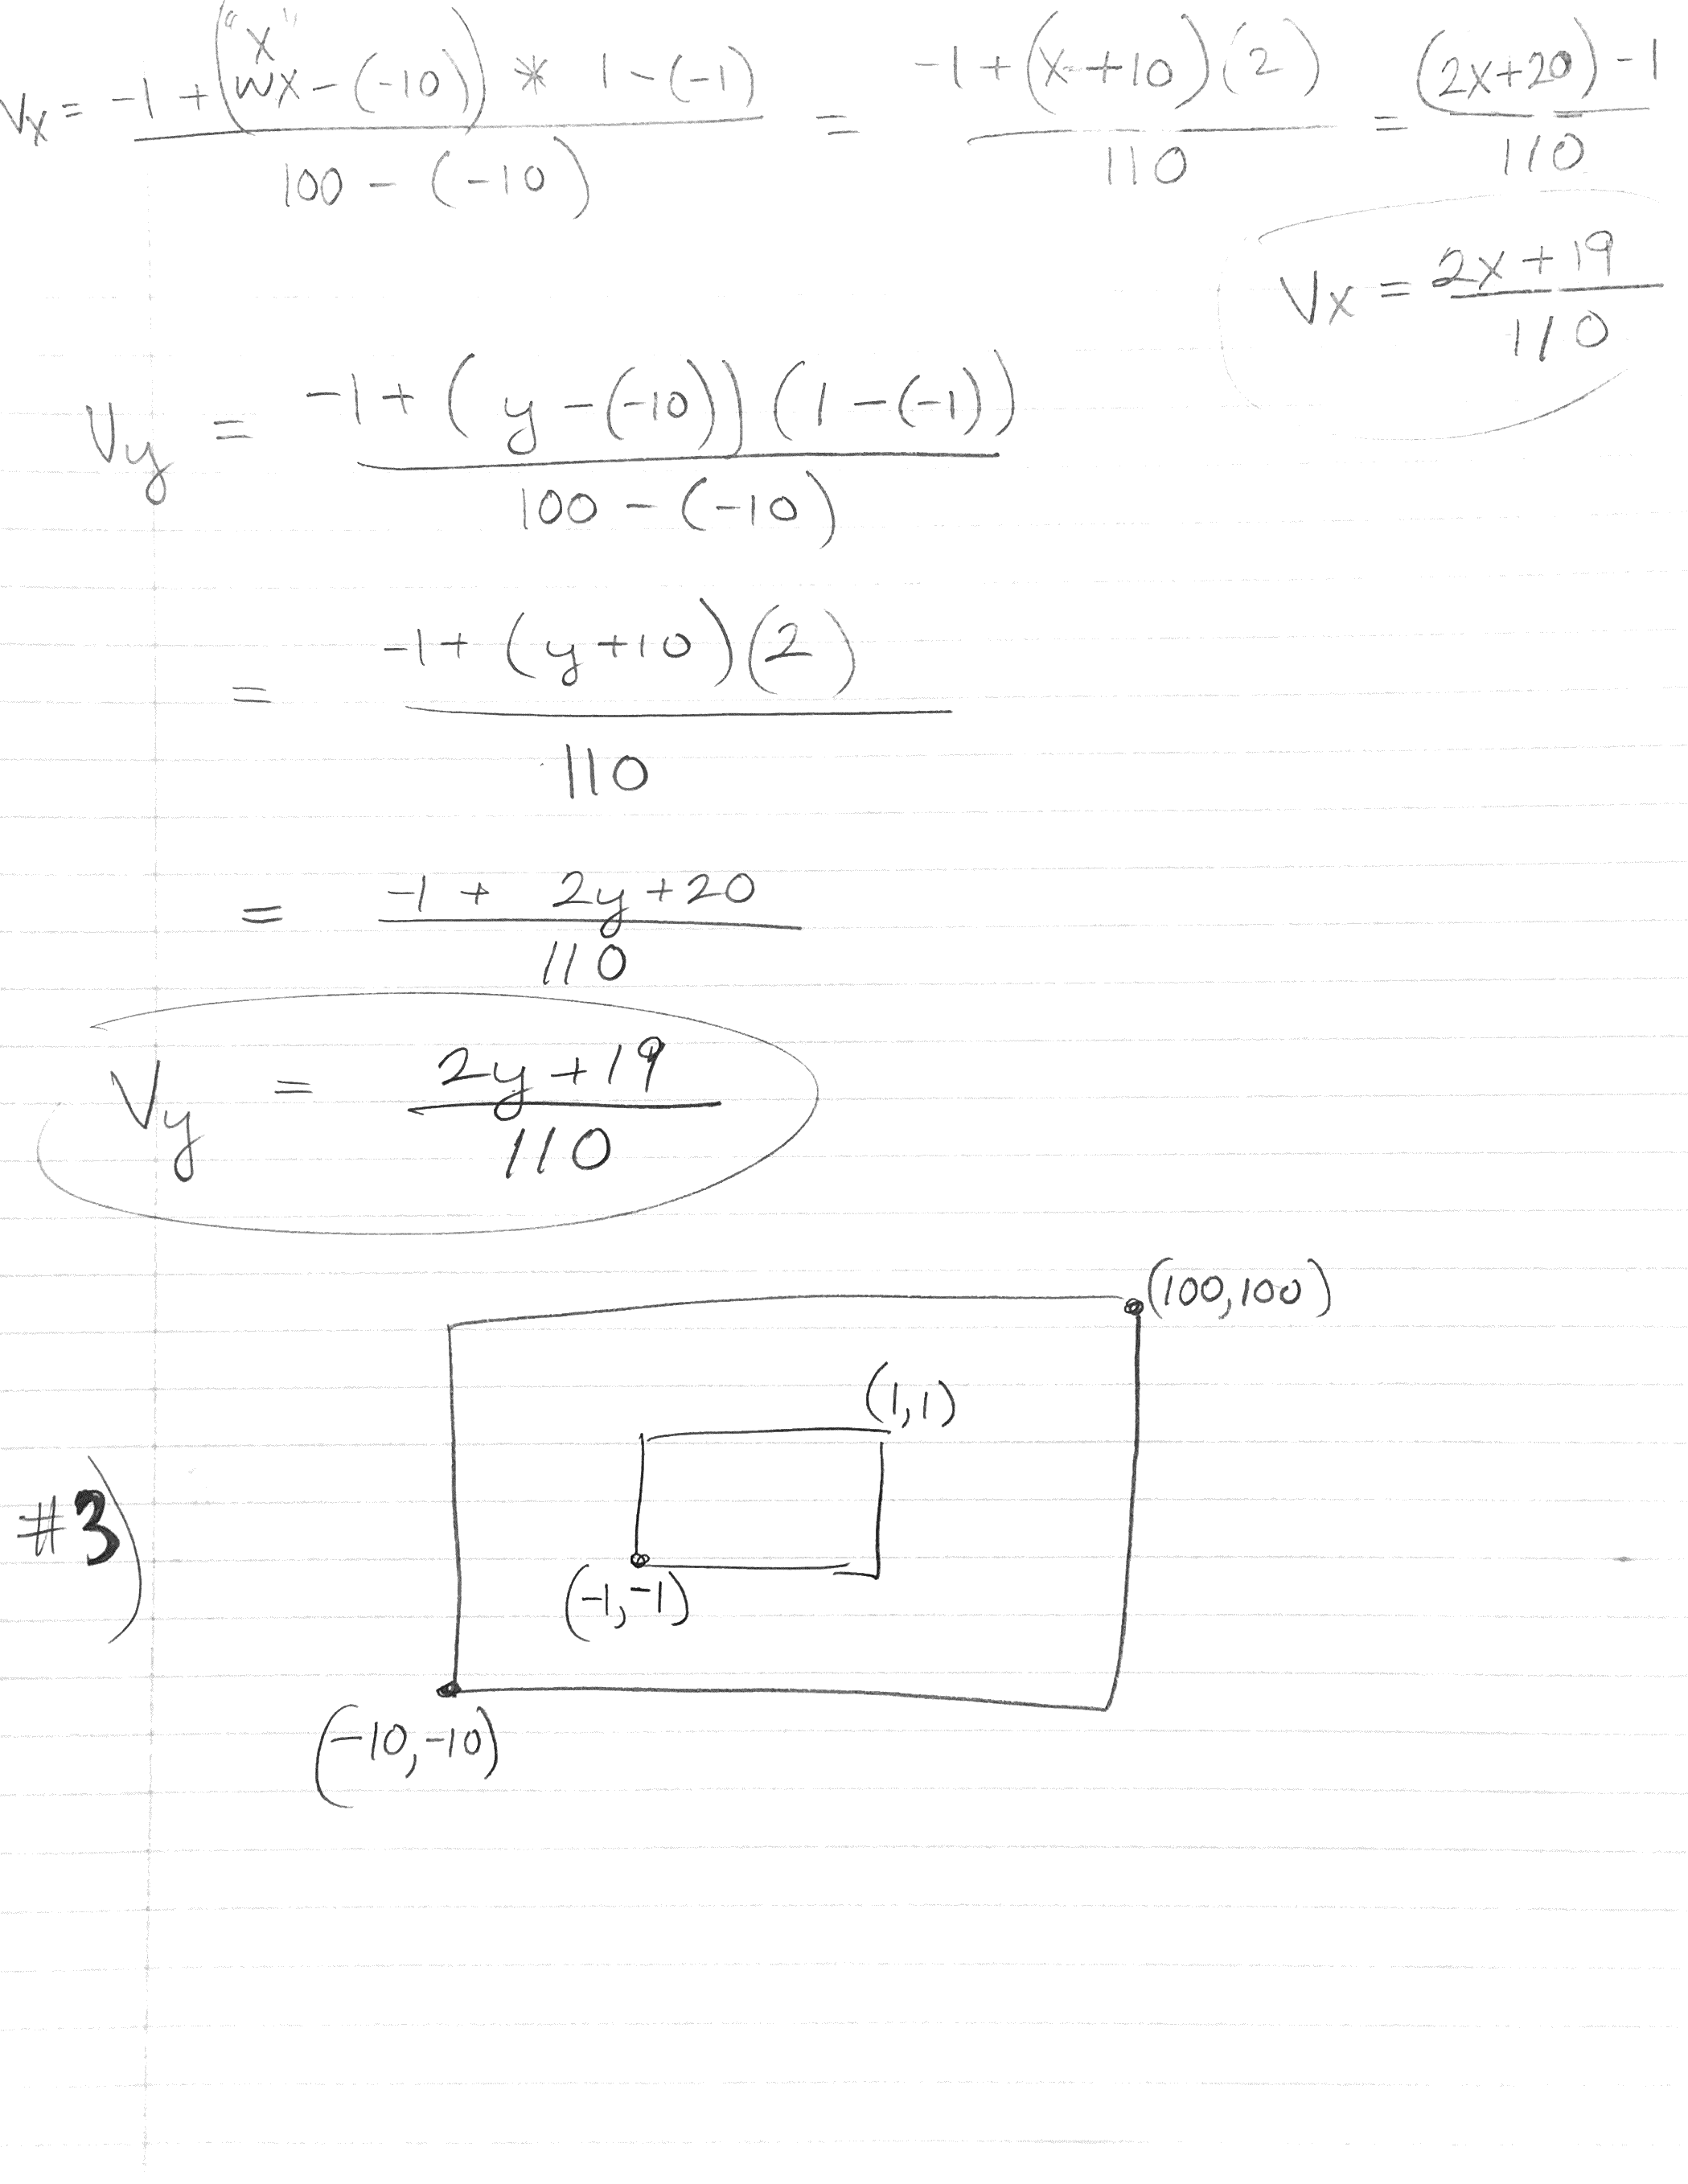 Vx = (-1 + ("x" wx - (-10)) * 1 - (-1)) / (100 - (-10)) = (-1 + (x + 10)(2)) / 110 = ((2x+20) - 1) / 110
Vx = (2x + 19) / 110
Vy = (-1 + (y - (-10)) (1 - (-1))) / (100 - (-10))
= (-1 + (y + 10)(2)) / 110
= (-1 + 2y + 20) / 110
Vy = (2y + 19) / 110
(100,100)
(1,1)
#3)
(-1,-1)
(-10,-10)